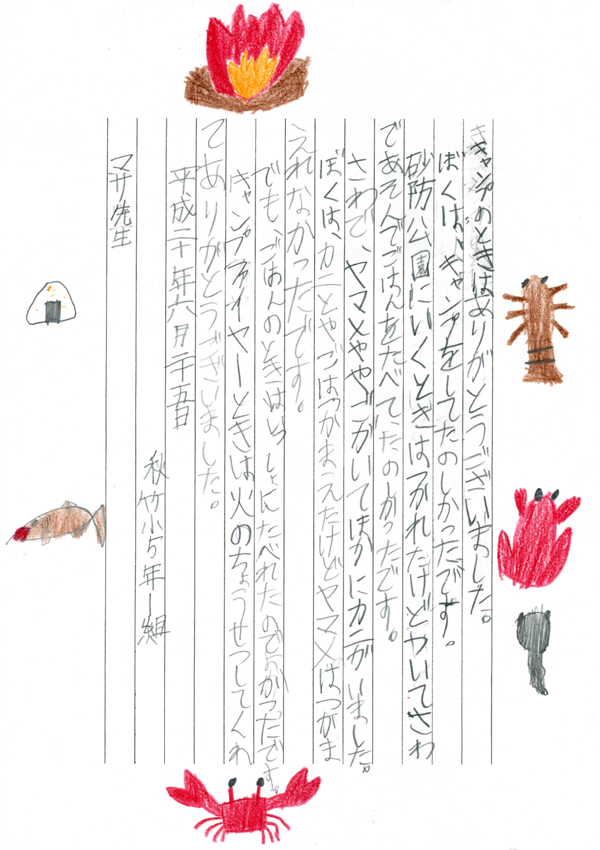 キャンプのときはありがとうございました。
ぼくは、キャンプをしてたのしかったです。
砂防公園にいくときはつかれたけどついてさわ
であそんでごはんをたべてたのしかったです。
さわで、ヤマメややごがいてほかにカニがいました。
ぼくは、カニとやごはつかまえたけどヤマメはつがま
えれなかったです。
でも、ごはんのときはいっしょにたべれたのでよかったです。
キャンプファイヤーときは火のちょうせつしてくれ
てありがとうございました。
平成二十年六月二十五日
秋竹小5年1組
マサ先生